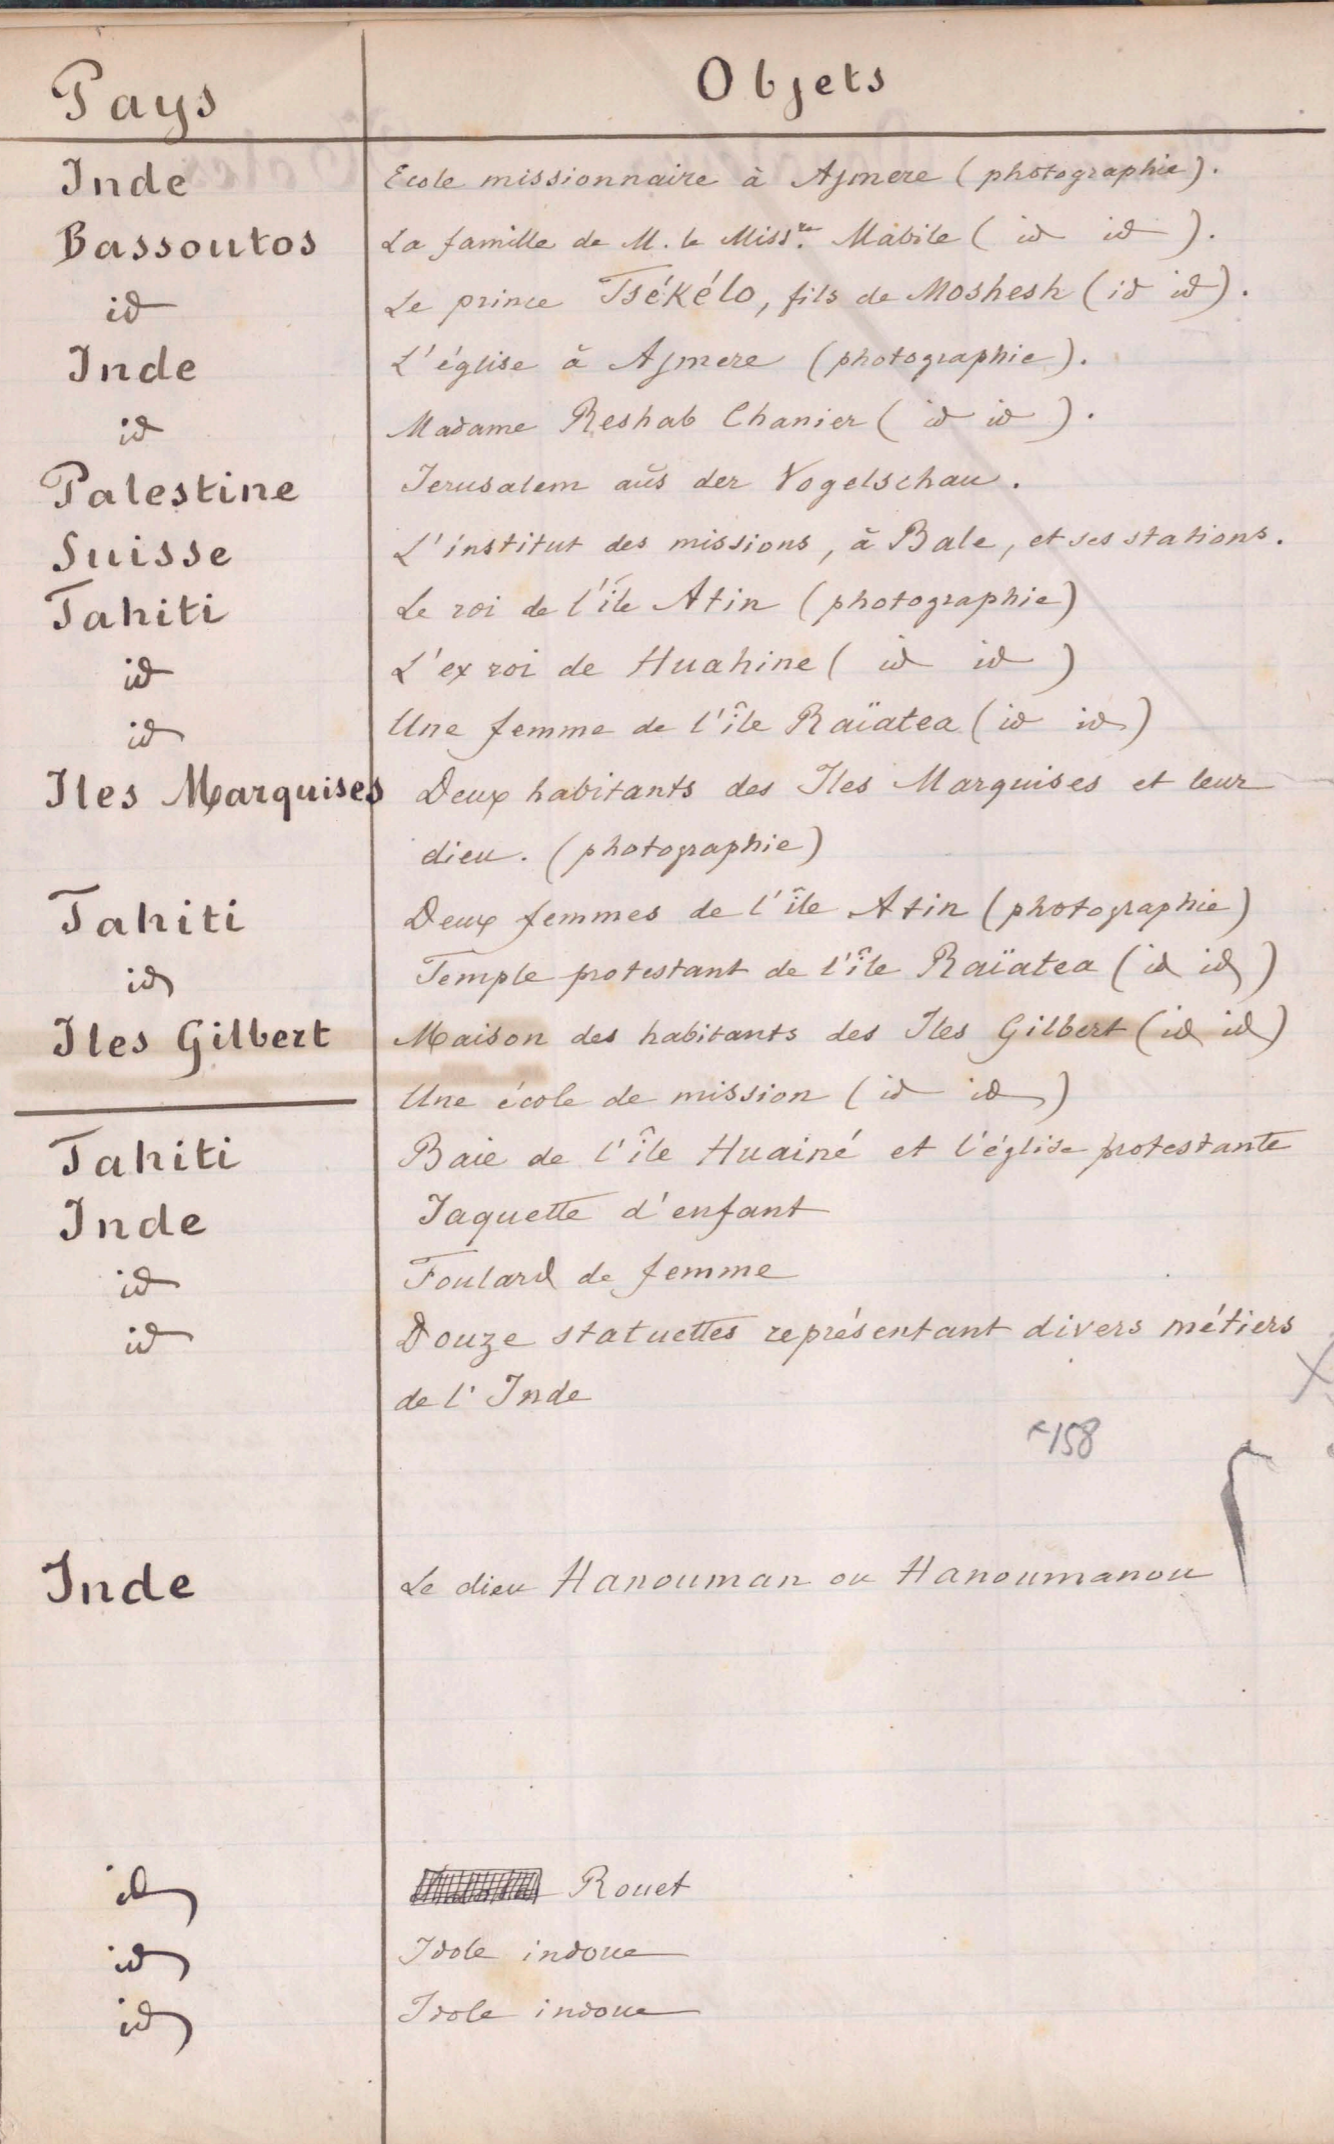 Pays Objets
Inde Ecole missionnaire à Ajmere (photographie).
Bassoutos La famille de M. le Missre. Mabile ( id id ).
id Le prince Tsékélo, fils de Moshesh (id id).
Inde L'église à Ajmere (photographie).
id Madame Reshab Chanier ( id id ).
Palestine Jerusalem aŭs der Vogelschau.
Suisse L'institut des missions, à Bale, et ses stations.
Tahiti Le roi de l'île Atin (photographie)
id L'ex roi de Huahine ( id id )
id Une femme de l'île Raïatea (id id)
Iles Marquises Deux habitants des Iles Marquises et leur
dieu. (photographie)
Tahiti Deux femmes de l'île Atin (photographie)
id Temple protestant de l'île Raïatea (id id)
Iles Gilbert Maison des habitants des Iles Gilbert (id id)
Une école de mission (id id)
Tahiti Baie de l'île Huainé et l'église protestante
Inde Jaquette d'enfant
id Foulard de femme
id Douze statuettes représentant divers métiers
de l'Inde
158
Inde Le dieu Hanouman ou Hanoumanou
id Rouet
id Idole indoue
id Idole indoue